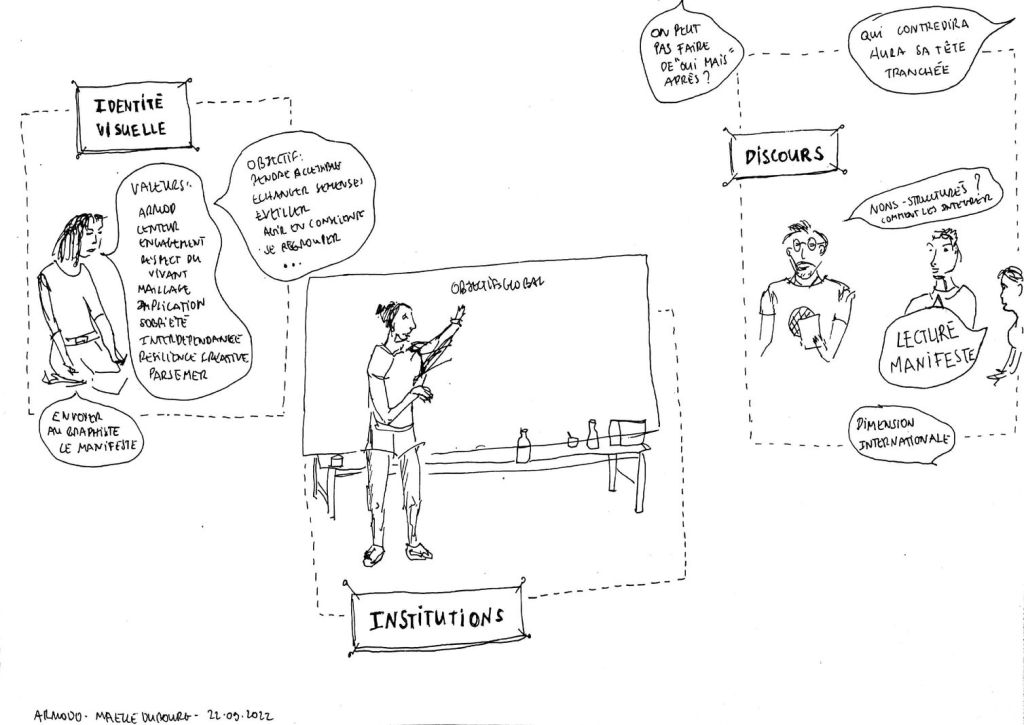 IDENTITÉ
VISUELLE
VALEURS:
ARMOD
LENTEUR
ENGAGEMENT
RESPECT DU
VIVANT
MAILLAGE
IMPLICATION
SOBRIÉTÉ
INTERDEPENDANCE
RÉSILIENCE CREATIVE
PARSEMER
OBJECTIF:
RENDRE ACCESSIBLE
ECHANGER SEMENSES
EVEILLER
AGIR EN CONSCIENCE
. SE REGROUPER
...
ENVOYER
AU GRAPHISTE
LE MANIFESTE
OBJECTIFS GLOBAL
INSTITUTIONS
ON PEUT
PAS FAIRE
DE "OUI MAIS"
APRÈS ?
QUI CONTREDIRA
AURA SA TÊTE
TRANCHÉE
DISCOURS
NONS-STRUCTURÉS ?
COMMENT LES INTEGRER
LECTURE
MANIFESTE
DIMENSION
INTERNATIONALE
MAELLE DUBOURG - 22.09.2022